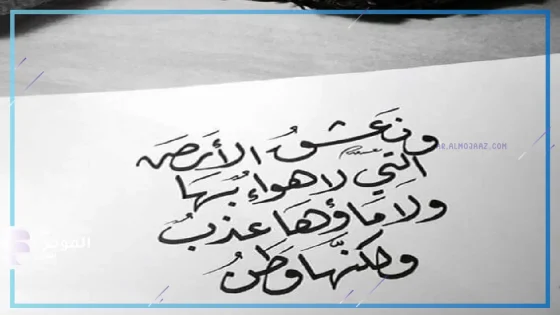 ونَعشقُ الأرضَ
التي لا هواءٌ بهَا
ولا مَاؤهَا عذبٌ
ولكنّهَا وَطنُ
AR.ALMOJAAZ.COM
الموجز